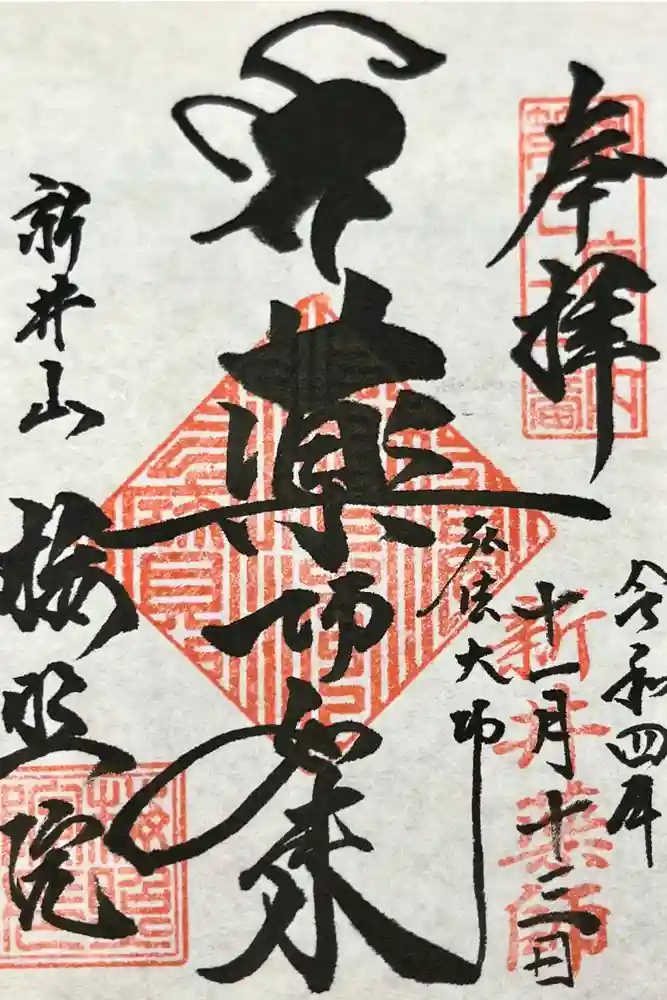 奉拝
令和四年
十一月十二日
新井薬師
薬師如来
弘法大師
新井山
梅照院